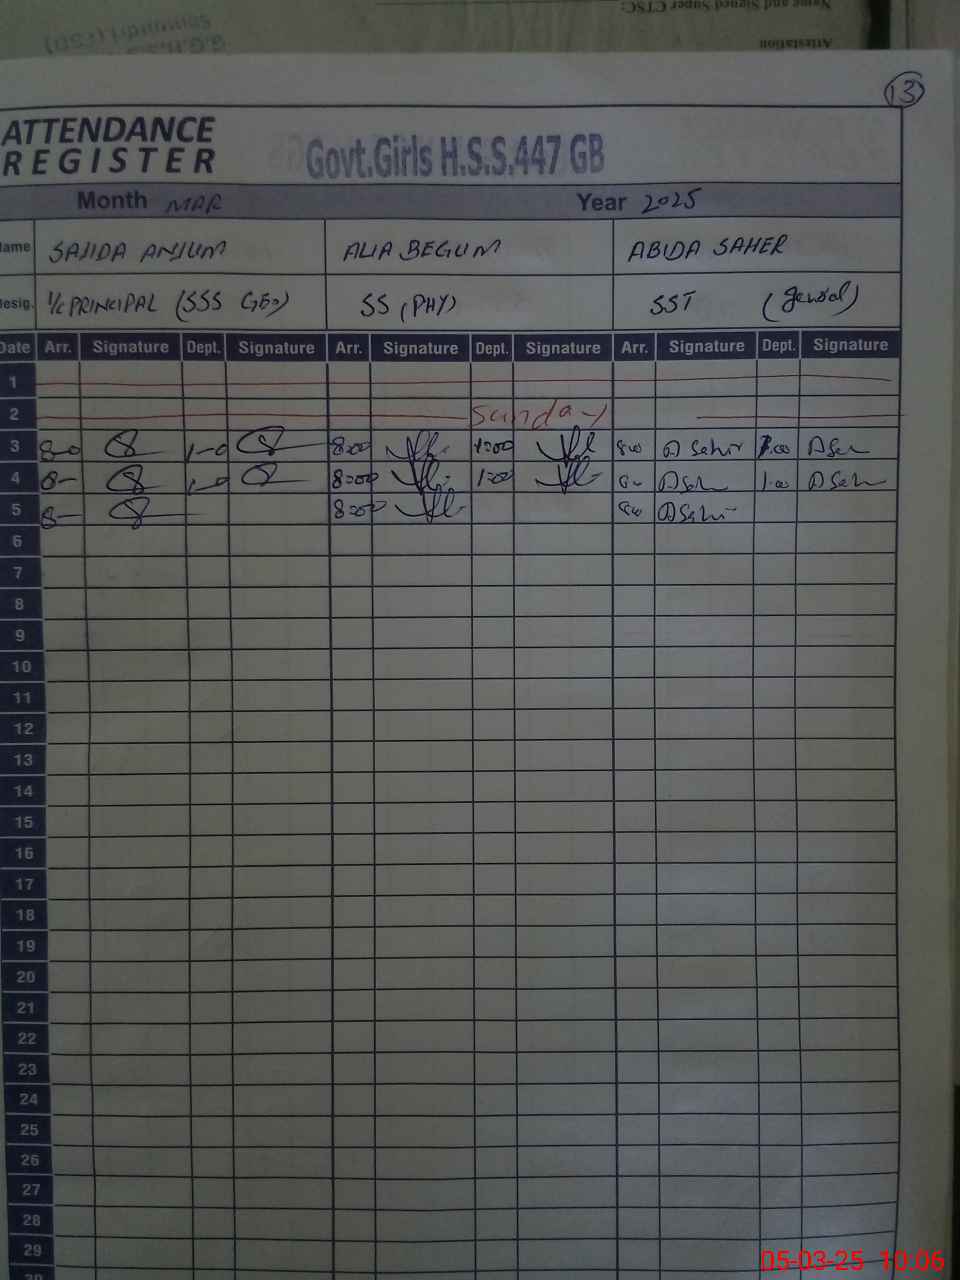 Name and Signed Super CTSC:
Attestation
13
ATTENDANCE
REGISTER
Govt.Girls H.S.S.447 GB
Month MAR Year 2025
Name SAJIDA ANJUM ALIA BEGUM ABIDA SAHER
Desig. I/C PRINCIPAL (SSS GEO) SS (PHY) SST (General)
Date Arr. Signature Dept. Signature Arr. Signature Dept. Signature Arr. Signature Dept. Signature
1
2 Sunday
3 8-0 1-0 8:00 1:00 8:00 A Sehir 1:00
4 8- 1-0 8:00 1:00 8- 1:00
5 8- 8:00 8:00
6
7
8
9
10
11
12
13
14
15
16
17
18
19
20
21
22
23
24
25
26
27
28
29
30
05-03-25 10:06